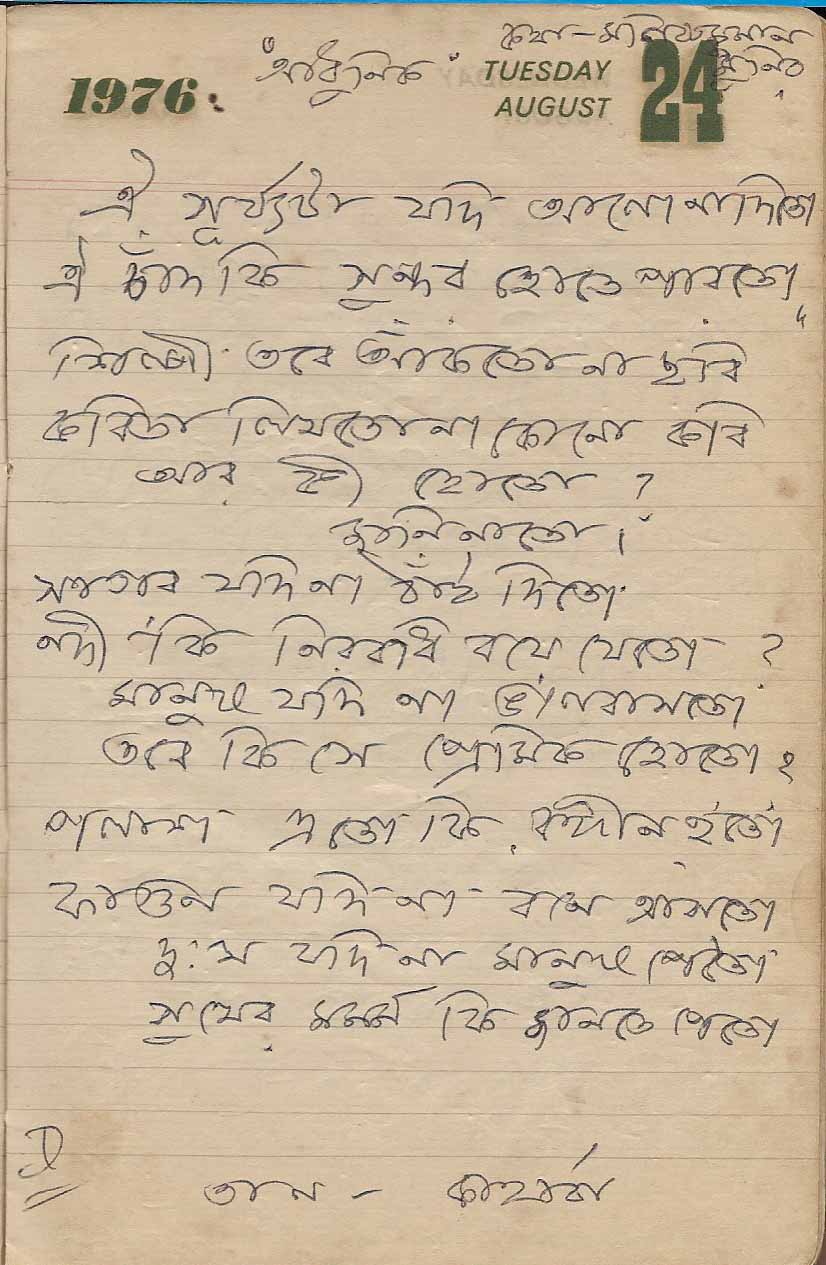 "আধুনিক" কথা -
1976 TUESDAY 24
AUGUST
ঐ সূর্য্যটা যদি আলো না দিতো
ঐ চাঁদ কি সুন্দর হোতে পারতো,
শিল্পী তবে আঁকতো না ছবি
কবিতা লিখতো না কোনো কবি
আর কী হোতো ?
জানি নাতো ।
সাগর যদি না ঠাঁই দিতো
নদী কি নিরবধি বয়ে যেতো ?
মানুষ যদি না ভালবাসতো
তবে কি সে প্রেমিক হোতো ?
পলাশ এতো কি রঙ্গীন হতো
ফাগুন যদি না বনে আসতো
দুঃখ যদি না মানুষ পেতো
সুখের পরশ কি জানতে পেতো
তাল - কাহার্বা